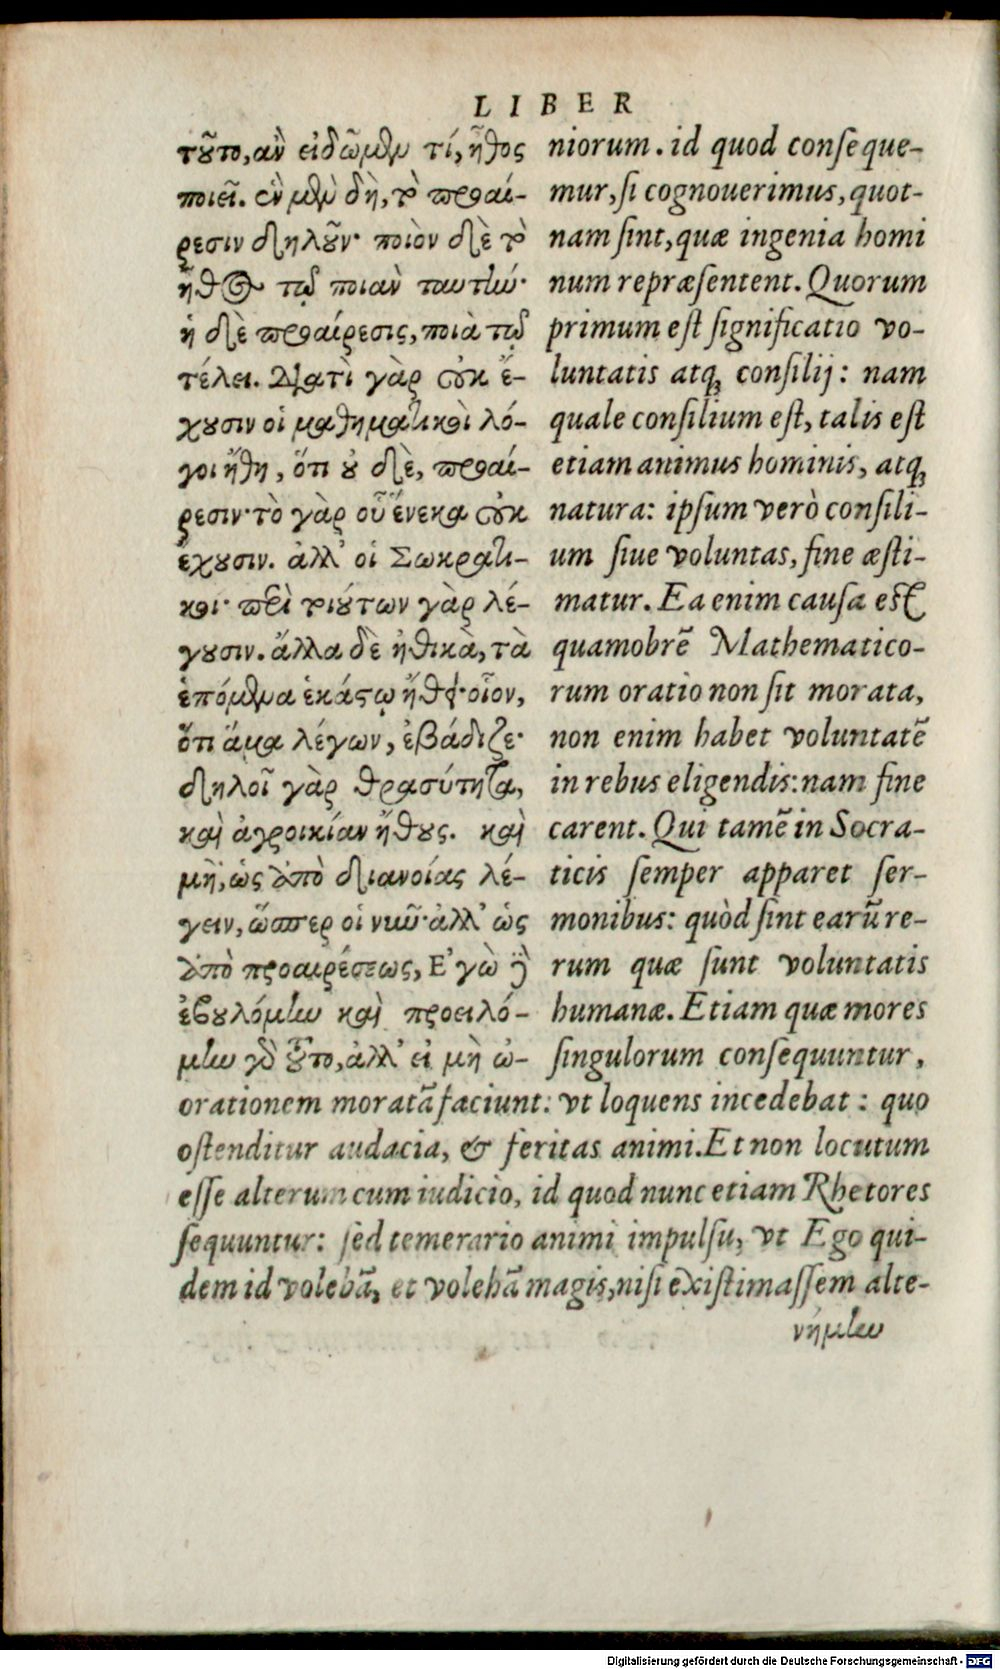 LIBER
τȣ͂το, ἂν εἰδῶμϟμ τί, ἦθος
ποιεῖ. ἓν μὲν δὴ, τὸ προαί-
ρεσιν δηλοῦν· ποιὸν δὲ τὸ
ἦθος τῷ ποιὰν ταύτην·
ἡ δὲ προαίρεσις, ποιὰ τῷ
τέλει. Διατὶ γὰρ οὐκ ἔ-
χȣσιν οἱ μαθηματικοὶ λό-
γοι ἤθη, ὅτι ȣ δὲ, προαί-
ρεσιν· τὸ γὰρ οὗ ἕνεκα οὐκ
ἔχȣσιν. ἀλλ᾽ οἱ Σωκρατι-
κοι· περὶ τοιȣ́των γὰρ λέ-
γȣσιν. ἄλλα δὲ ἠθικὰ, τὰ
ἑπόμενα ἑκάστῳ ἤθει· οἷον,
ὅτι ἅμα λέγων, ἐβάδιζε·
δηλοῖ γὰρ θρασύτητα,
καὶ ἀγροικίαν ἤθȣς. καὶ
μὴ, ὡς ἀπὸ διανοίας λέ-
γειν, ὥσπερ οἱ νῦν· ἀλλ᾽ ὡς
ἀπὸ προαιρέσεως, Ε᾽γὼ δὲ
ἐβȣλόμην καὶ προειλό-
μην γὰρ τοῦτο, ἀλλ᾽ εἰ μὴ ὠ-
niorum. id quod conseque-
mur, si cognouerimus, quot-
nam sint, quæ ingenia homi
num repræsentent. Quorum
primum est significatio vo-
luntatis atq; consilij: nam
quale consilium est, talis est
etiam animus hominis, atq;
natura: ipsum verò consili-
um siue voluntas, fine æsti-
matur. Ea enim causa est
quamobrẽ Mathematico-
rum oratio non sit morata,
non enim habet voluntatẽ
in rebus eligendis: nam fine
carent. Qui tamẽ in Socra-
ticis semper apparet ser-
monibus: quòd sint earũ re-
rum quæ sunt voluntatis
humanæ. Etiam quæ mores
singulorum consequuntur,
orationem moratã faciunt: vt loquens incedebat: quo
ostenditur audacia, & feritas animi. Et non locutum
esse alterum cum iudicio, id quod nunc etiam Rhetores
sequuntur: sed temerario animi impulsu, vt Ego qui-
dem id volebã, et volebã magis, nisi existimassem alte-
νήμην
Digitalisierung gefördert durch die Deutsche Forschungsgemeinschaft - DFG